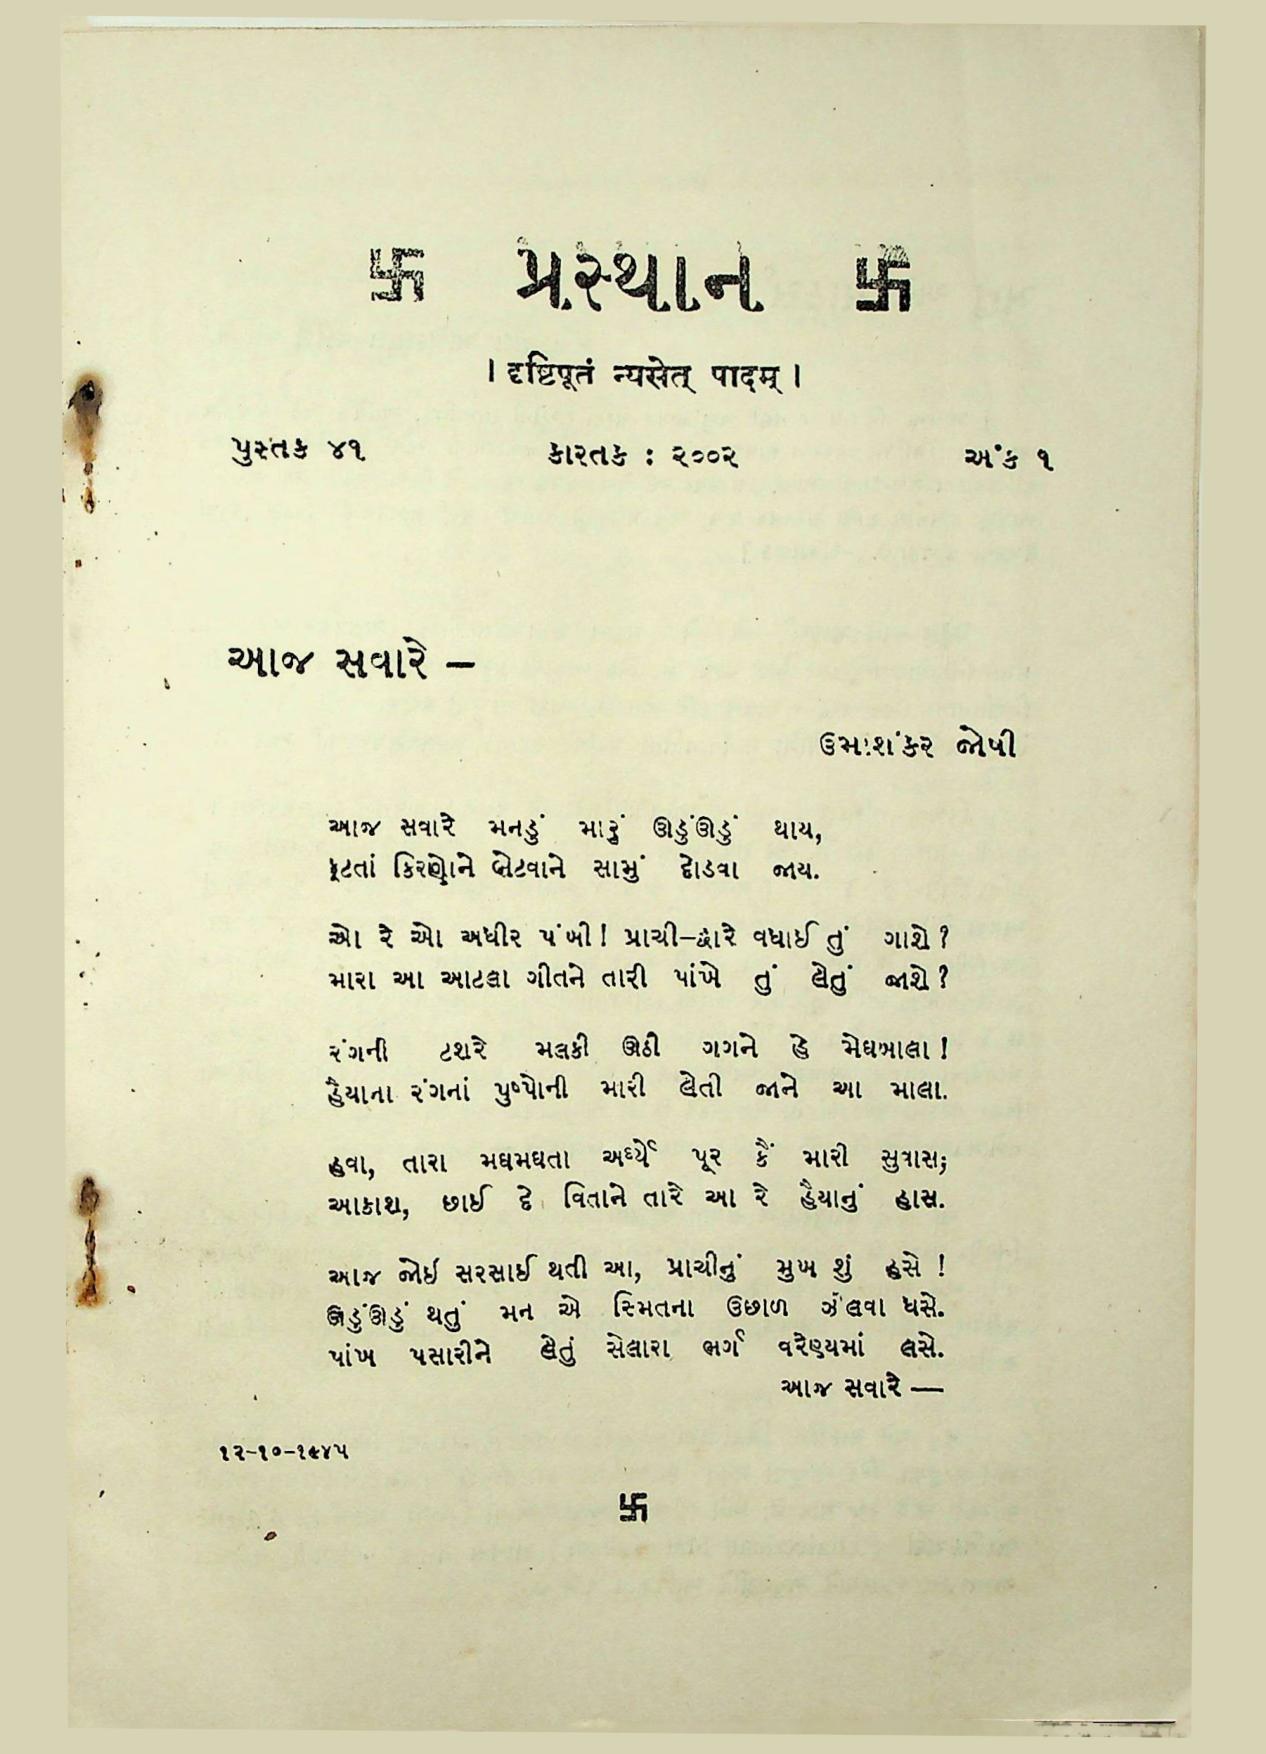 卐 પ્રસ્થાન 卐
। दृष्टिपूतं न्यसेत् पादम् ।
પુસ્તક ૪૧ કારતક : ૨૦૦૨ અંક ૧
આજ સવારે —
ઉમાશંકર જોષી
આજ સવારે મનડું મારું ઊડુંઊડું થાય,
ફૂટતાં કિરણોને ભેટવાને સામું દોડવા જાય.
ઓ રે ઓ અધીર પંખી! પ્રાચી-દ્વારે વધાઈ તું ગાશે?
મારા આ આટલા ગીતને તારી પાંખે તું લેતું જાશે?
રંગની ટશરે મલકી ઊઠી ગગને હે મેઘબાલા!
હૈયાના રંગનાં પુષ્પોની મારી લેતી જાને આ માલા.
હવા, તારા મઘમઘતા અર્ઘ્યે પૂર કૈં મારી સુવાસ;
આકાશ, છાઈ દે વિતાને તારે આ રે હૈયાનું હાસ.
આજ જોઇ સરસાઈ થતી આ, પ્રાચીનું મુખ શું હસે !
ઊડુંઊડું થતું મન એ સ્મિતના ઉછાળ ઝીલવા ધસે.
પાંખ પસારીને લેતું સેલારા ભર્ગ વરેણ્યમાં લસે.
આજ સવારે —
૧૨-૧૦-૧૯૪૫
卐